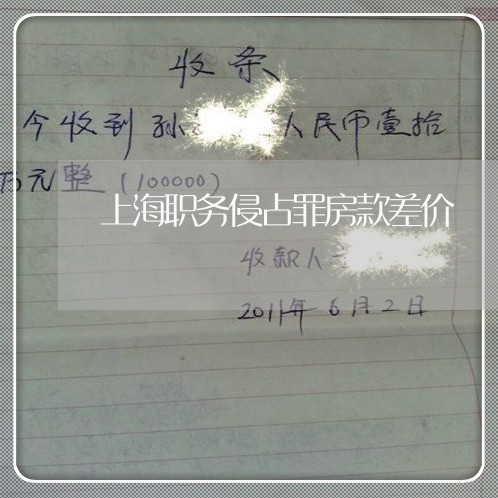 收条
今收到孙 人民币壹拾
万元整(100000)
上海职务侵占罪房款差价
收款人
2011年6月2日